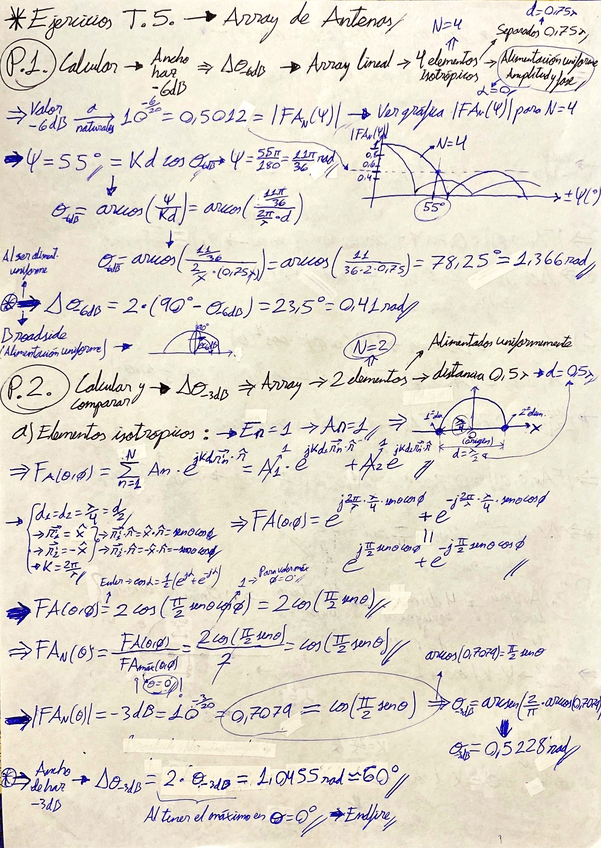 *Ejercicios T.5. → Array de Antenas
N=4
d=0,75λ
Separados 0,75λ
P.1. Calcular → Ancho haz -6dB ⇒ Δθ-6dB → Array lineal → 4 elementos isotrópicos → Alimentación uniforme Amplitud y fase
α=0
⇒ Valor -6dB a naturales → 10^(-6/20) = 0,5012 = |FA_N(Ψ)| → Ver gráfica |FA_N(Ψ)| para N=4
|FA_N(Ψ)|
1
0,8
0,6
0,4
N=4
55°
±Ψ(°)
⇒ Ψ = 55° = Kd cos θ-6dB → Ψ = 55π/180 = 11π/36 rad
θ-6dB = arcos(Ψ/Kd) = arcos((11π/36)/(2π/λ · d))
θ-6dB = arcos((11/36)/(2/λ · (0,75λ))) = arcos(11/(36·2·0,75)) = 78,25° = 1,366 rad
Al ser aliment. uniforme
⇒ Δθ-6dB = 2·(90° - θ-6dB) = 23,5° = 0,41 rad
Broadside (Alimentación uniforme) →
90°
N=2
Alimentados uniformemente
P.2. Calcular y comparar → Δθ-3dB ⇒ Array → 2 elementos → distancia 0,5λ → d=0,5λ
a) Elementos isotrópicos: → En=1 → An=1 ⇒
(origen)
x
d=λ/2
⇒ FA(θ,φ) = Σ_{n=1}^{N} An · e^(jKdn r̂n·n̂) = A1 · e^(jKd1 r̂1·n̂) + A2 e^(jKd2 r̂2·n̂)
→ d1=d2=λ/4=d/2
→ r̂1 = x̂ → r̂1·n̂ = x̂·n̂ = senθcosφ
→ r̂2 = -x̂ → r̂2·n̂ = -x̂·n̂ = -senθcosφ
→ K = 2π/λ
⇒ FA(θ,φ) = e^(j 2π/λ · λ/4 · senθcosφ) + e^(-j 2π/λ · λ/4 · senθcosφ)
=
e^(j π/2 senθcosφ) + e^(-j π/2 senθcosφ)
Euler → cos h = 1/2 (e^(jh) + e^(-jh))
1 → Para valor máx φ=0°
⇒ FA(θ,φ) = 2 cos(π/2 senθcosφ) = 2cos(π/2 senθ)
⇒ FA_N(θ) = FA(θ,φ)/FAmáx(θ,φ) = 2cos(π/2 senθ)/2 = cos(π/2 senθ)
θ=0°
arcos(0,7079) = π/2 senθ
⇒ |FA_N(θ)| = -3dB = 10^(-3/20) = 0,7079 = cos(π/2 senθ) ⇒ θ-3dB = arcsen(2/π · arcos(0,7079))
θ-3dB = 0,5228 rad
⇒ Ancho de haz -3dB → Δθ-3dB = 2·θ-3dB = 1,0455 rad ≈ 60°
Al tener el máximo en θ=0° ⇒ Endfire